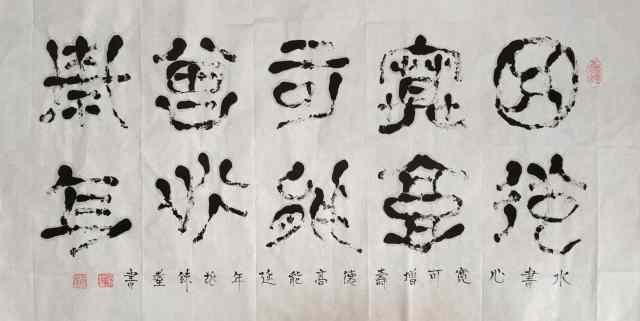 心寬可增壽
德高能延年
水書心寬可增壽德高能延年書